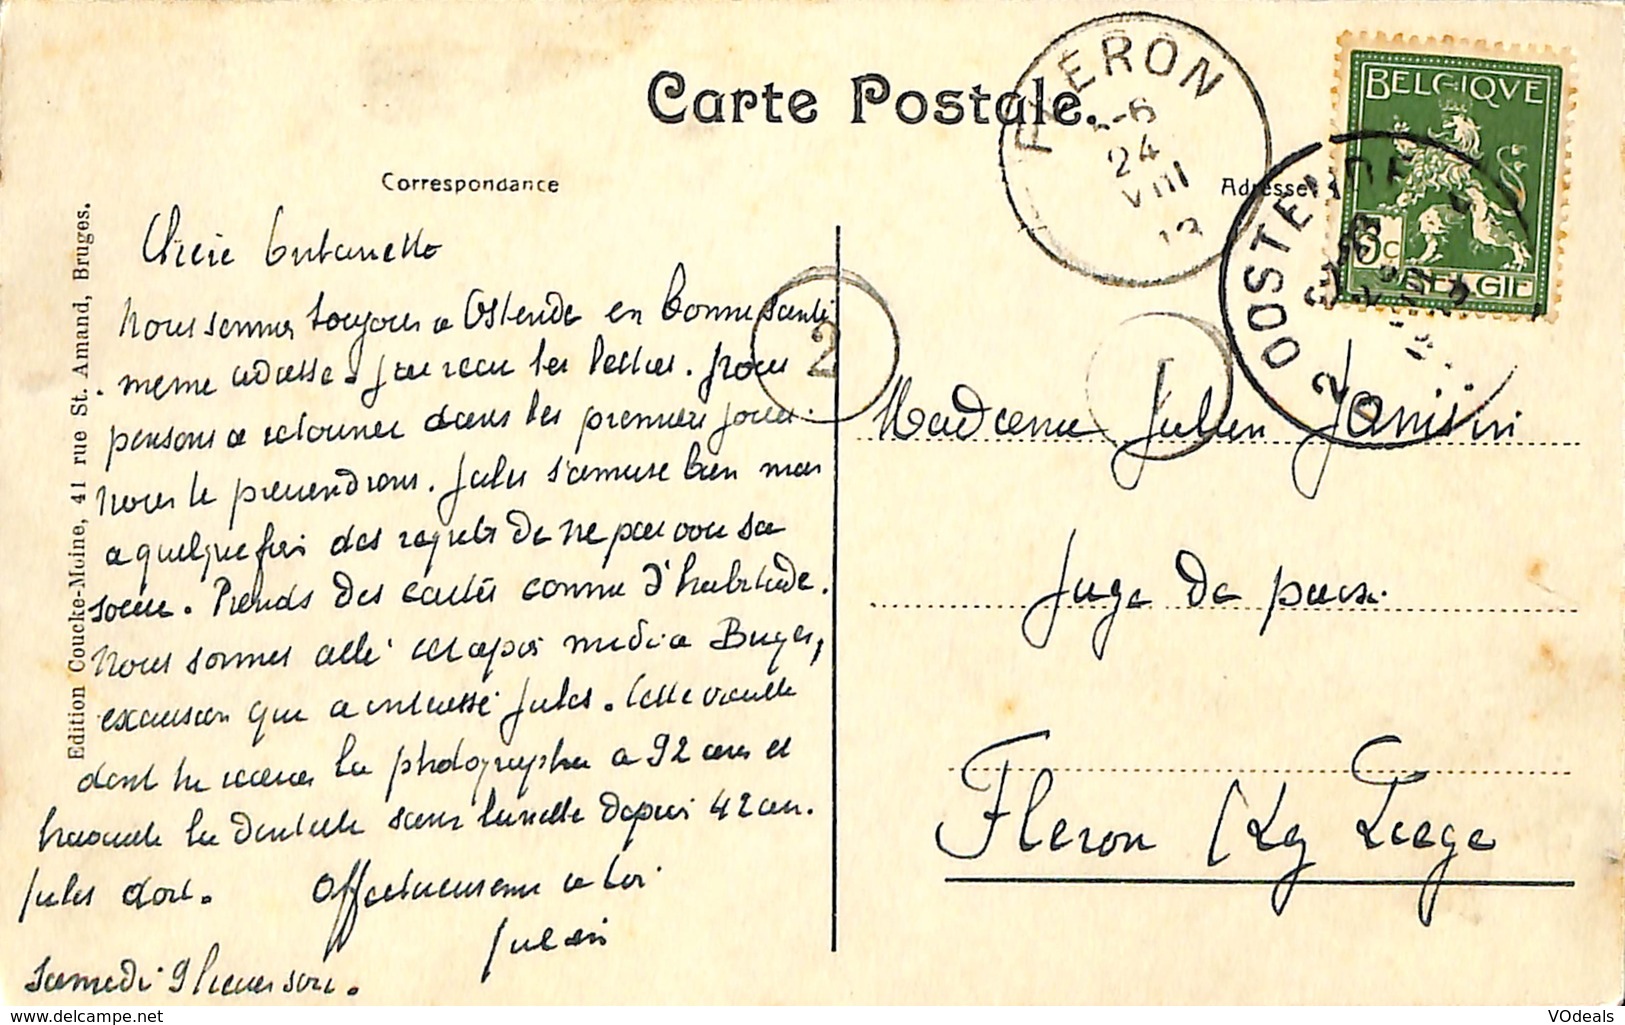 Carte Postale.
Correspondance
Adresse
Edition Coucke-Moine, 41 rue St. Amand, Bruges.
FLERON
5-6
24
VIII
13
BELGIQVE
5c
BELGIE
OOSTENDE
2
2
Chère Antoinette
Nous sommes toujours a Ostende en bonne santé
meme adresse. J'ai recu tes lettres. Nous
pensons a retourner dans les premiers jours.
Nous te previendrons. Jules s'amuse bien mais
a quelquefois des regrets de ne pas voir sa
soeur. Prends des cartes comme d'habitude.
Nous sommes allé cet apres midi a Bruges,
excursion qui a interessé Jules. Cette vieille
dont tu recevras la photographie a 92 ans et
travaille la dentelle sans lunette depuis 42 ans.
Jules dort. Affectueusement a toi
Julien
Samedi 9 heures soir.
Madame Julien
Juge de paix.
Fleron (Lg Liege
VDdeals
https://www.delcampe.net/